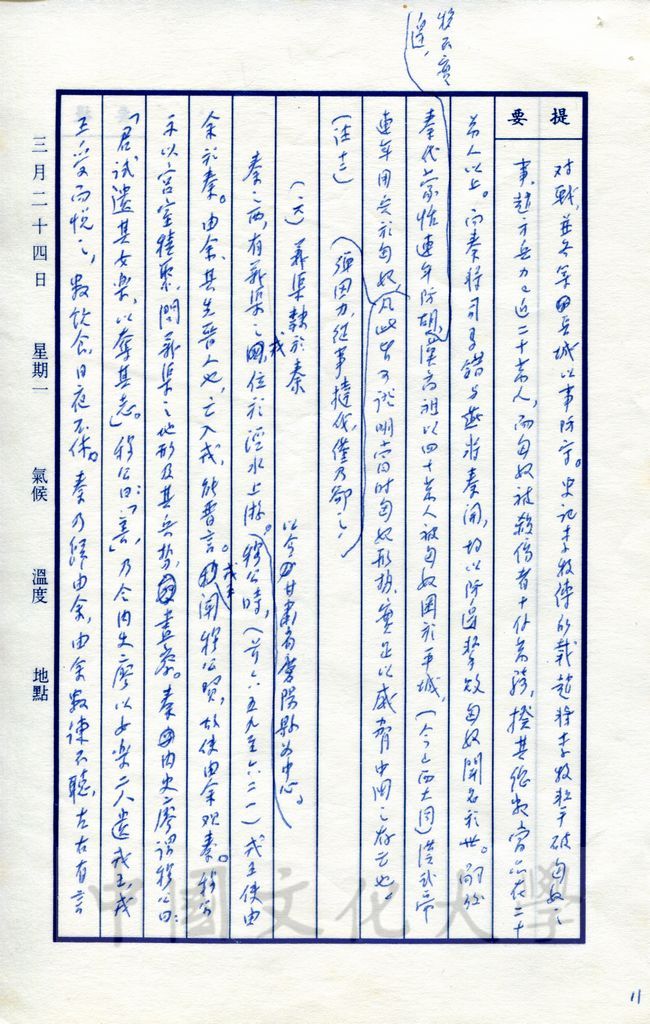 提要
对戰，並各築
長城以事防守。史記李牧傳的載趙將李牧擊破匈奴之
事，趙方兵力已近二十萬人，而匈奴被殺傷者十餘萬騎，揆其總數當亦在二十
萬人以上。而秦將司馬錯与燕將秦開，均以防邊擊敗匈奴聞名於世。嗣後
秦代蒙恬連年防胡，漢高祖以四十萬人被匈奴困於平城，（今山西大同）漢武帝
連年用兵於匈奴，凡此皆可説明當时匈奴形势，實足以威脅中国之存亡也。
（註十三）
（彈固力，從事撻伐，僅乃卻之）
（六）義渠隸於秦
秦之西，有義渠戎之國，位於涇水上游。以今甘肅省慶陽縣為中心。
穆公時，（前六五九至六二一）戎王使由
余於秦。由余，其先晋人也，亡入戎，能晋言。戎王聞穆公賢，故使由余观秦。穆公
示以宮室積聚，問義渠之地形及其兵势，盡察。秦内史廖謂穆公曰：
「君試遺其女樂，以奪其志」。穆公曰：「善」，乃令内史廖以女樂二人遺戎王戎
王受而悦之，数飲食，日夜不休。秦乃歸由余，由余数諫不聽，左右有言
三月二十四日　星期一　氣候　溫度　地點
11
中國文化大學